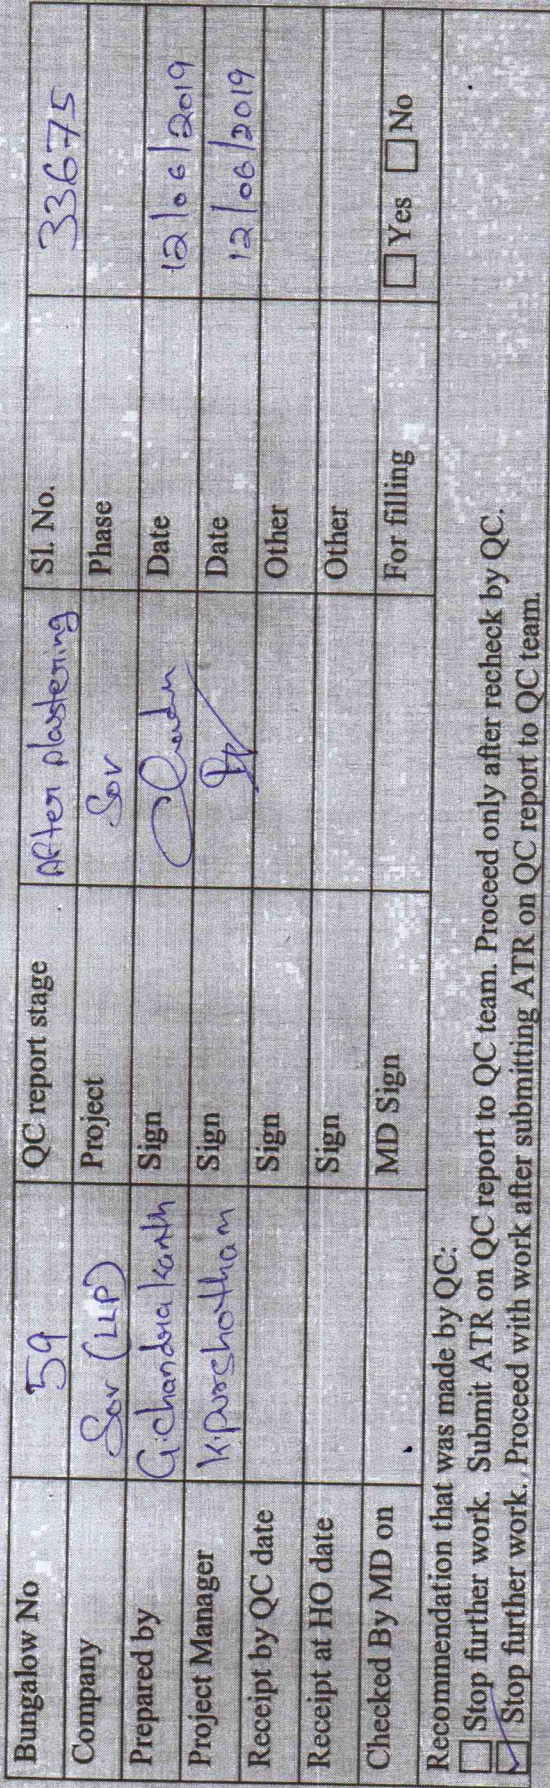 Bungalow No 59 QC report stage After plastering Sl. No. 33675
Company Sov (LLP) Project Sov Phase
Prepared by G.chandra kanth Sign Date 12/06/2019
Project Manager K.purshotham Sign Date 12/06/2019
Receipt by QC date Sign Other
Receipt at HO date Sign Other
Checked By MD on MD Sign For filling ☐ Yes ☐ No
Recommendation that was made by QC:
☐ Stop further work. Submit ATR on QC report to QC team. Proceed only after recheck by QC.
☑ Stop further work. Proceed with work after submitting ATR on QC report to QC team.